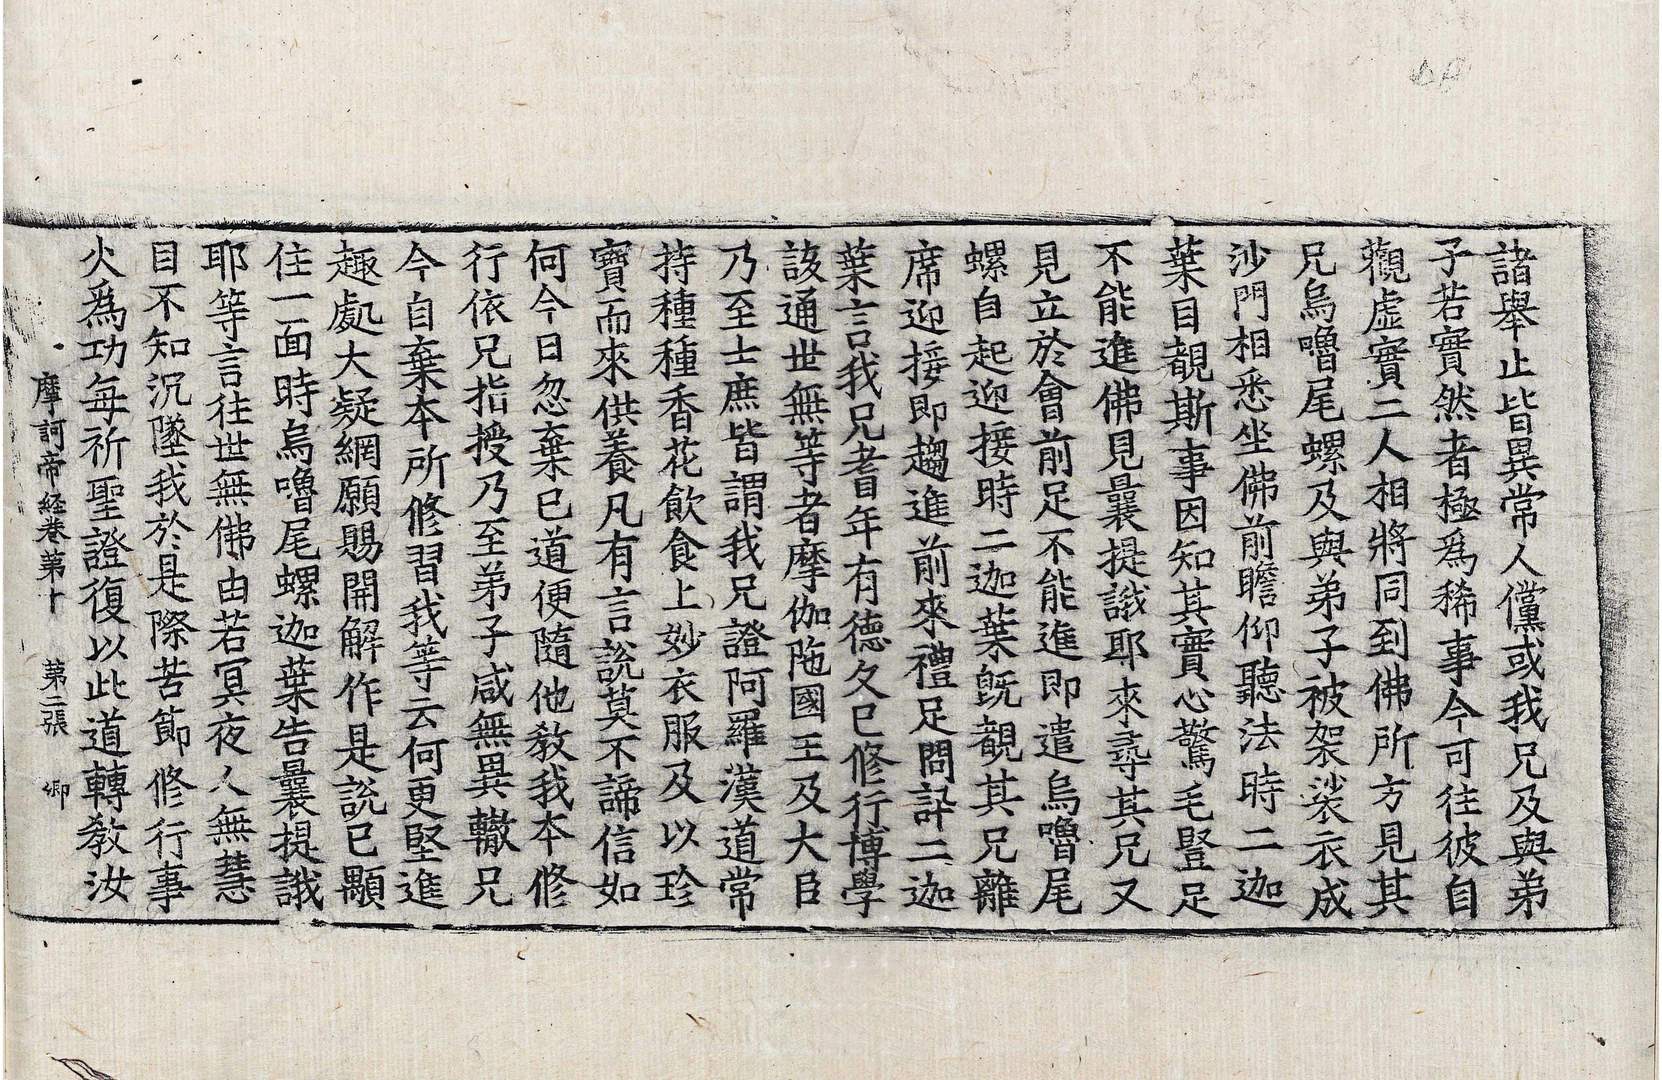 諸舉止皆異常人儻或我兄及與弟
子若實然者極爲稀事今可往彼自
觀虛實二人相將同到佛所方見其
兄烏嚕尾螺及與弟子被袈裟衣成
沙門相悉坐佛前瞻仰聽法時二迦
葉目覩斯事因知其實心驚毛豎足
不能進佛見曩提誐耶來尋其兄又
見立於會前足不能進即遣烏嚕尾
螺自起迎接時二迦葉旣覩其兄離
席迎接即趨進前來禮足問訊二迦
葉言我兄耆年有德久已修行博學
該通世無等者摩伽陁國王及大臣
乃至士庶皆謂我兄證阿羅漢道常
持種種香花飲食上妙衣服及以珍
寶而來供養凡有言說莫不諦信如
何今日忽棄已道便隨他教我本修
行依兄指授乃至弟子咸無異轍兄
今自棄本所修習我等云何更堅進
趣處大疑網願賜開解作是說已顯
住一面時烏嚕尾螺迦葉告曩提誐
耶等言往世無佛由若冥夜人無慧
目不知沉墜我於是際苦節修行事
火爲功每祈聖證復以此道轉教汝
摩訶帝経卷第十 第二張 卿